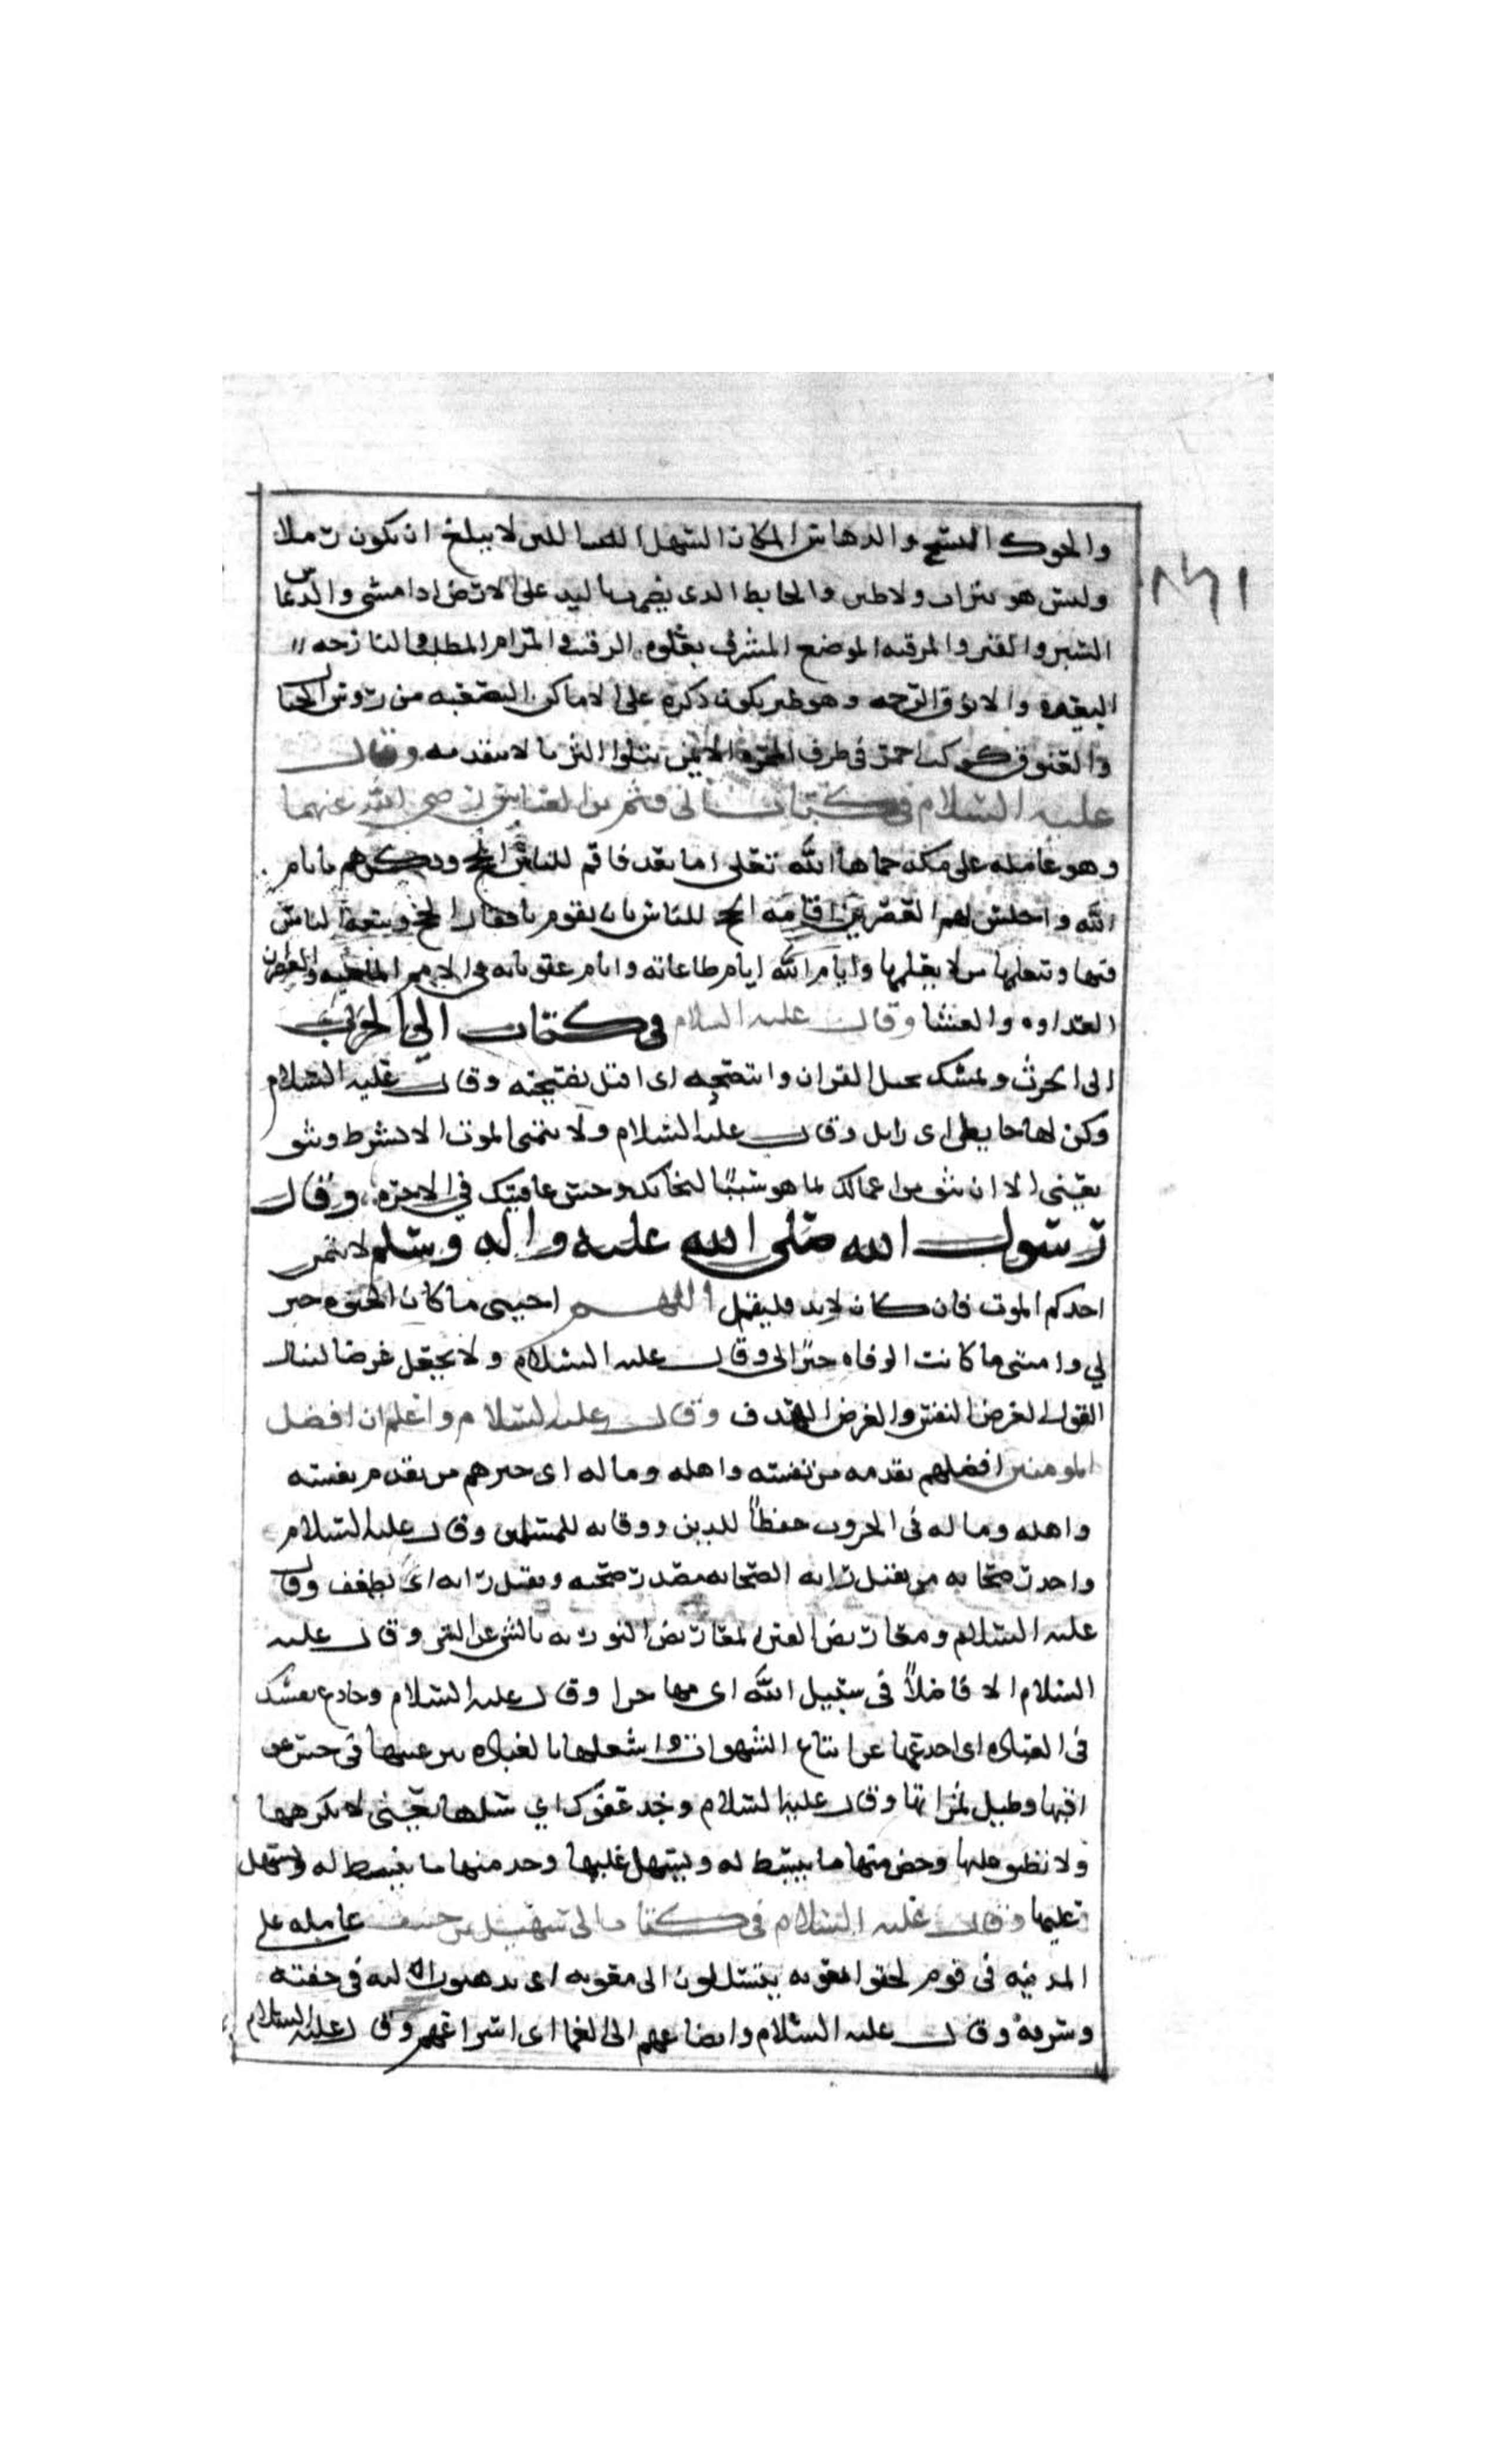 والحوك النسج والدهاس المكان السهل اللين لا يبلغ ان يكون رملا
وليس هو بتراب ولا طين والخابط الذى يضرب باليد على الارض اذا مشى والدعاس
السير والمرقبه الموضع المشرف يعلوه الرقيب والمرام المطلب والنازحه
البعيده والانوق الرخمه وهو طير يكون ذكره على الاماكن الصعبه من روس الجبال
والعيوق كوكب احمر فى طرف المجره الايمن يتلوا الثريا لا يتقدمه وقال
عليه السلام فى كتاب الى قثم بن العباس رضى الله عنهما
وهو عامله على مكه حماها الله تعلى اما بعد فاقم للناس الحج وذكرهم بايام
الله واجلس لهم العصرين اقامه الحج للناس بان يقوم بافعال الحج ويتبعه الناس
فيها وتعلمها من لا يعلمها وايام الله ايام طاعاته وايام عقوباته فى الامم الماضيه والعصران
الغداوه والعشا وقال عليه السلام فى كتاب الى الحرث
الى الحرث وتمسك بحبل القران وانتصحه اى اقبل نصيحته وقال عليه السلام
وكن لها اى زايل وقال عليه السلام ولا تتمنى الموت الا بشرط وثيق
يعينى الا ان تثق من اعمالك بما هو سببا لنجاتك وحسن عاقبتك فى الاخره وقال
رسول الله صلى الله عليه واله وسلم لا يتمنين
احدكم الموت فان كان لا بد فليقل اللهم احيينى ما كان الحيوه خير
لي وامتنى ما كانت الوفاه خيرا لى وقال عليه السلام ولا تجعل عرضا لنبال
القول العرض النفس والغرض الهدف وقال عليه السلام واعلم ان افضل
المومنين افضلهم تقدمه من نفسه واهله وماله اى خيرهم من يقدم نفسه
واهله وماله فى الحروب حفظا للدين ووقايه للمسلمين وقال عليه السلام
واحذر صحابه من يفيل رايه الصحابه مصدر صحبه ويفيل رايه اى يضعف وقال
عليه السلام ومعاريض الفتن المعاريض التوريه بالشى عن الشى وقال عليه
السلام الا فاصلا فى سبيل الله اى مهاجرا وقال عليه السلام وخادع نفسك
فى العباده اى اخدعها عن اتباع الشهوات واشغلها بالعباده
وقال عليه السلام وخذ عفوك اي سلها يعينى لا تكرهها
ولا منها ما ينبسط له ويسهل عليها وخذ منها ما ينبسط له ويسهل
عليها وقال عليه السلام فى كتاب الى سهيل بن حنيف عامله على
المدينه فى قوم لحقوا بمعويه يتسللون الى معويه اى يذهبون اليه فى خفيه
وسرعة وقال عليه السلام وايضاعهم الى العما اى اسراعهم وقال عليه السلام